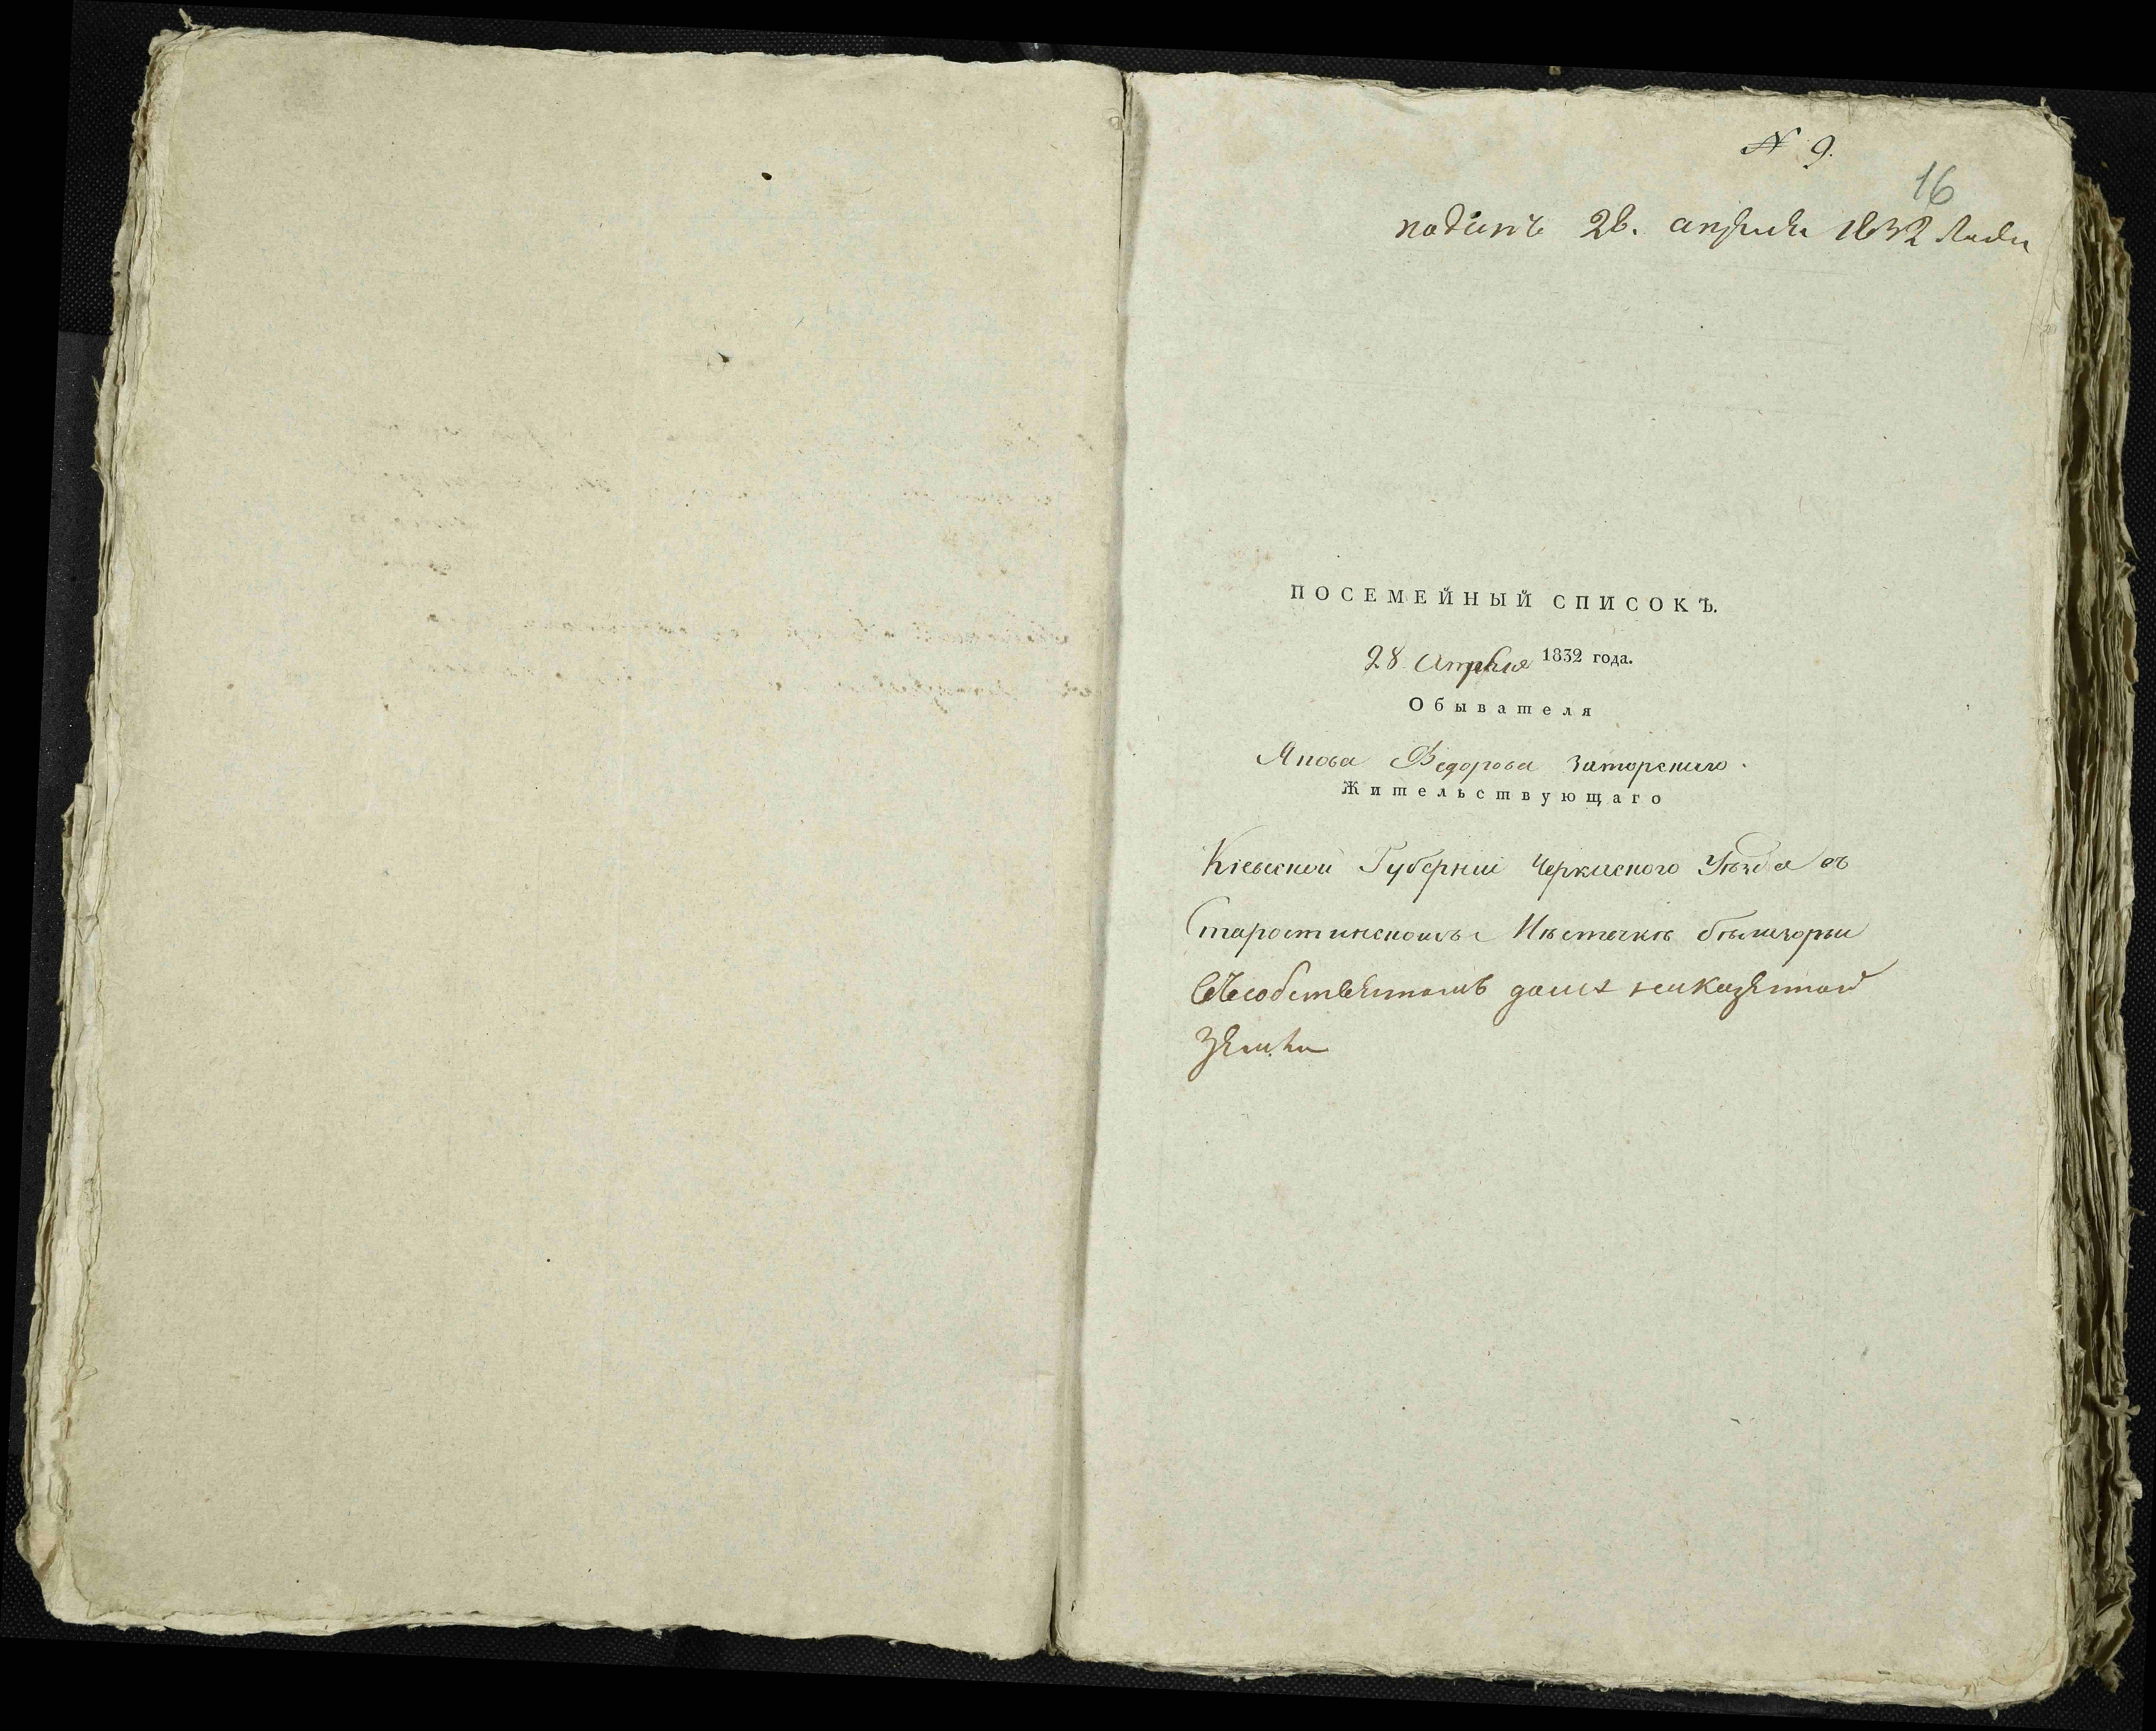 № 9.
16
поданъ 28. апреля 1832 года
ПОСЕМЕЙНЫЙ СПИСОКЪ.
28 Апреля 1832 года.
Обывателя
Якова Федорова Заторскаго.
Жительствующаго
Кіевской Губерніи Черкаского Уѣзда въ
Старостинскомъ Мѣстечкѣ бѣлозорьи
въ собственномъ доме на казенной
земли